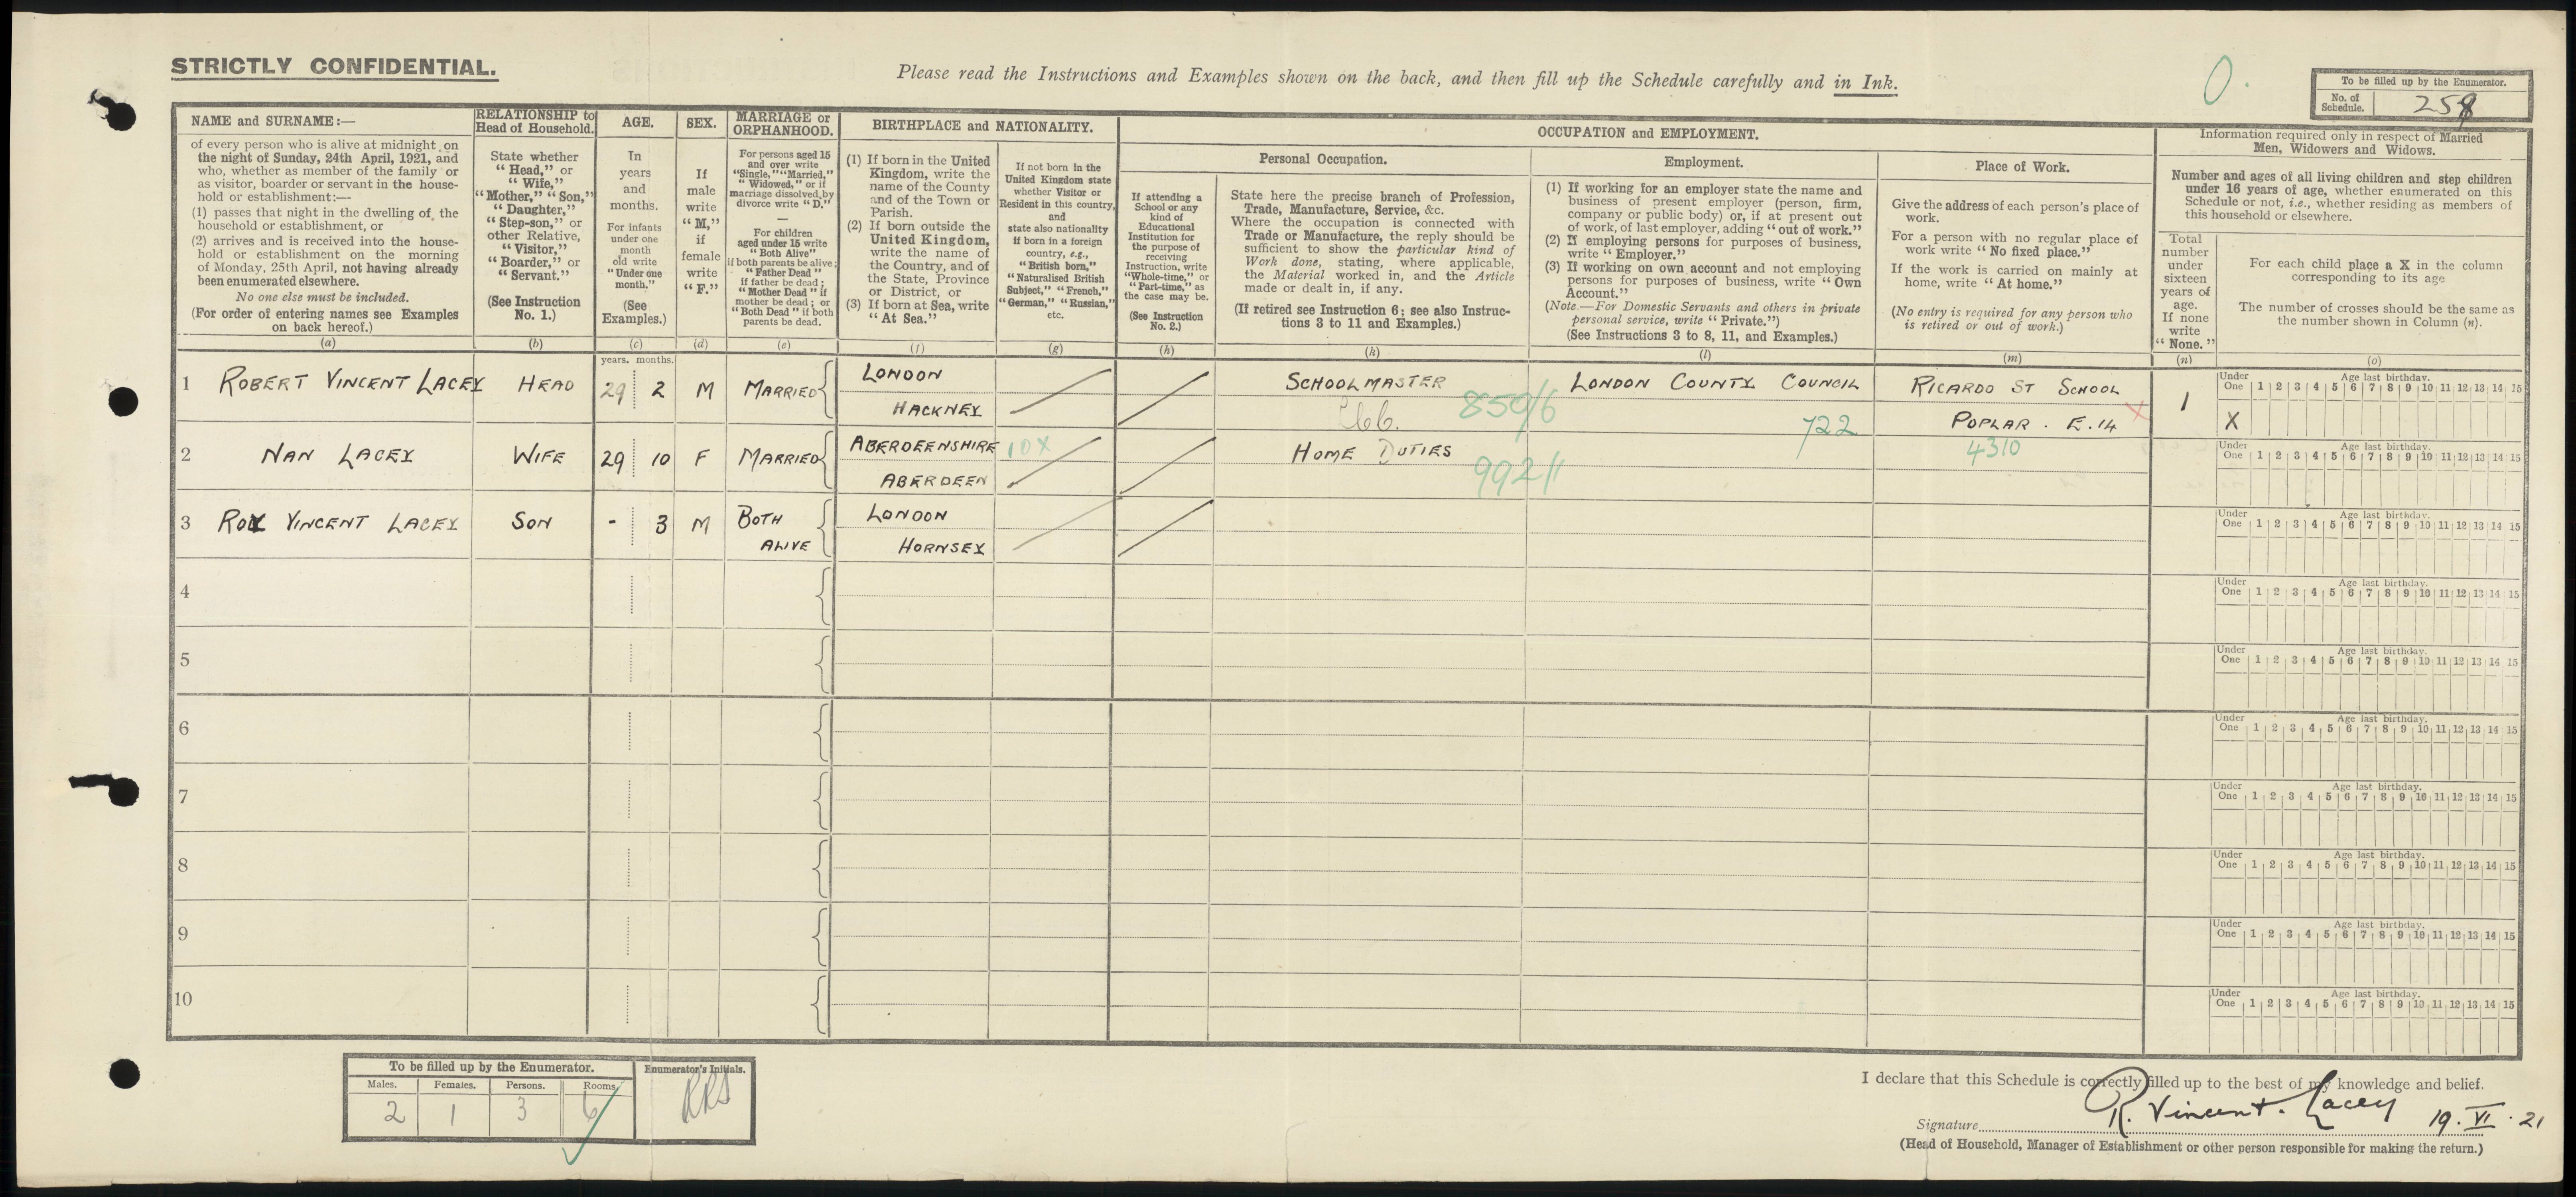 STRICTLY CONFIDENTIAL.
Please read the Instructions and Examples shown on the back, and then fill up the Schedule carefully and in Ink.
0.
To be filled up by the Enumerator.
No. of Schedule.
NAME and SURNAME:—
of every person who is alive at midnight on
the night of Sunday, 24th April, 1921, and
who, whether as member of the family or
as visitor, boarder or servant in the house-
hold or establishment:—
(1) passes that night in the dwelling of the
household or establishment, or
(2) arrives and is received into the house-
hold or establishment on the morning
of Monday, 25th April, not having already
been enumerated elsewhere.
No one else must be included.
(For order of entering names see Examples
on back hereof.)
(a)
RELATIONSHIP to
Head of Household.
State whether
"Head," or
"Wife,"
"Mother," "Son,"
"Daughter,"
"Step-son," or
other Relative,
"Visitor,"
"Boarder," or
"Servant."
(See Instruction
No. 1.)
(b)
AGE.
In
years
and
months.
For infants
under one
month
old write
"Under one
month."
(See
Examples.)
(c)
SEX.
If
male
write
"M,"
if
female
write
"F."
(d)
MARRIAGE or
ORPHANHOOD.
For persons aged 15
and over write
"Single," "Married,"
"Widowed," or if
marriage dissolved by
divorce write "D."
—
For children
aged under 15 write
"Both Alive"
if both parents be alive;
"Father Dead"
if father be dead;
"Mother Dead" if
mother be dead; or
"Both Dead" if both
parents be dead.
(e)
BIRTHPLACE and NATIONALITY.
(1) If born in the United
Kingdom, write the
name of the County
and of the Town or
Parish.
(2) If born outside the
United Kingdom,
write the name of
the Country, and of
the State, Province
or District, or
(3) If born at Sea, write
"At Sea."
(f)
If not born in the
United Kingdom state
whether Visitor or
Resident in this country,
and
state also nationality
if born in a foreign
country, e.g.,
"British born,"
"Naturalised British
Subject," "French,"
"German," "Russian,"
etc.
(g)
OCCUPATION and EMPLOYMENT.
If attending a
School or any
kind of
Educational
Institution for
the purpose of
receiving
Instruction, write
"Whole-time," or
"Part-time," as
the case may be.
(See Instruction
No. 2.)
(h)
Personal Occupation.
State here the precise branch of Profession,
Trade, Manufacture, Service, &c.
Where the occupation is connected with
Trade or Manufacture, the reply should be
sufficient to show the particular kind of
Work done, stating, where applicable,
the Material worked in, and the Article
made or dealt in, if any.
(If retired see Instruction 6; see also Instruc-
tions 3 to 11 and Examples.)
(k)
Employment.
(1) If working for an employer state the name and
business of present employer (person, firm,
company or public body) or, if at present out
of work, of last employer, adding "out of work."
(2) If employing persons for purposes of business,
write "Employer."
(3) If working on own account and not employing
persons for purposes of business, write "Own
Account."
(Note.—For Domestic Servants and others in private
personal service, write "Private.")
(See Instructions 3 to 8, 11, and Examples.)
(l)
Place of Work.
Give the address of each person's place of
work.
For a person with no regular place of
work write "No fixed place."
If the work is carried on mainly at
home, write "At home."
(No entry is required for any person who
is retired or out of work.)
(m)
Information required only in respect of Married
Men, Widowers and Widows.
Number and ages of all living children and step children
under 16 years of age, whether enumerated on this
Schedule or not, i.e., whether residing as members of
this household or elsewhere.
Total
number
under
sixteen
years of
age.
If none
write
"None."
(n)
For each child place a X in the column
corresponding to its age
The number of crosses should be the same as
the number shown in Column (n).
(o)
years. months.
1 ROBERT VINCENT LACEY HEAD 29 2 M MARRIED LONDON HACKNEY SCHOOLMASTER 859/6 LONDON COUNTY COUNCIL 722 RICARDO ST SCHOOL POPLAR. E.14 X 1
Under One 1 2 3 4 5 6 7 8 9 10 11 12 13 14 15 Age last birthday.
X
2 NAN LACEY WIFE 29 10 F MARRIED ABERDEENSHIRE ABERDEEN 10X HOME DUTIES 992/1 4310
Under One 1 2 3 4 5 6 7 8 9 10 11 12 13 14 15 Age last birthday.
3 ROY VINCENT LACEY SON - 3 M BOTH ALIVE LONDON HORNSEY
Under One 1 2 3 4 5 6 7 8 9 10 11 12 13 14 15 Age last birthday.
4
Under One 1 2 3 4 5 6 7 8 9 10 11 12 13 14 15 Age last birthday.
5
Under One 1 2 3 4 5 6 7 8 9 10 11 12 13 14 15 Age last birthday.
6
Under One 1 2 3 4 5 6 7 8 9 10 11 12 13 14 15 Age last birthday.
7
Under One 1 2 3 4 5 6 7 8 9 10 11 12 13 14 15 Age last birthday.
8
Under One 1 2 3 4 5 6 7 8 9 10 11 12 13 14 15 Age last birthday.
9
Under One 1 2 3 4 5 6 7 8 9 10 11 12 13 14 15 Age last birthday.
10
Under One 1 2 3 4 5 6 7 8 9 10 11 12 13 14 15 Age last birthday.
To be filled up by the Enumerator.
Males. Females. Persons. Rooms
2 1 3 6
Enumerator's Initials.
RRS
I declare that this Schedule is correctly filled up to the best of my knowledge and belief.
Signature R. Vincent. Lacey 19. VI. 21
(Head of Household, Manager of Establishment or other person responsible for making the return.)